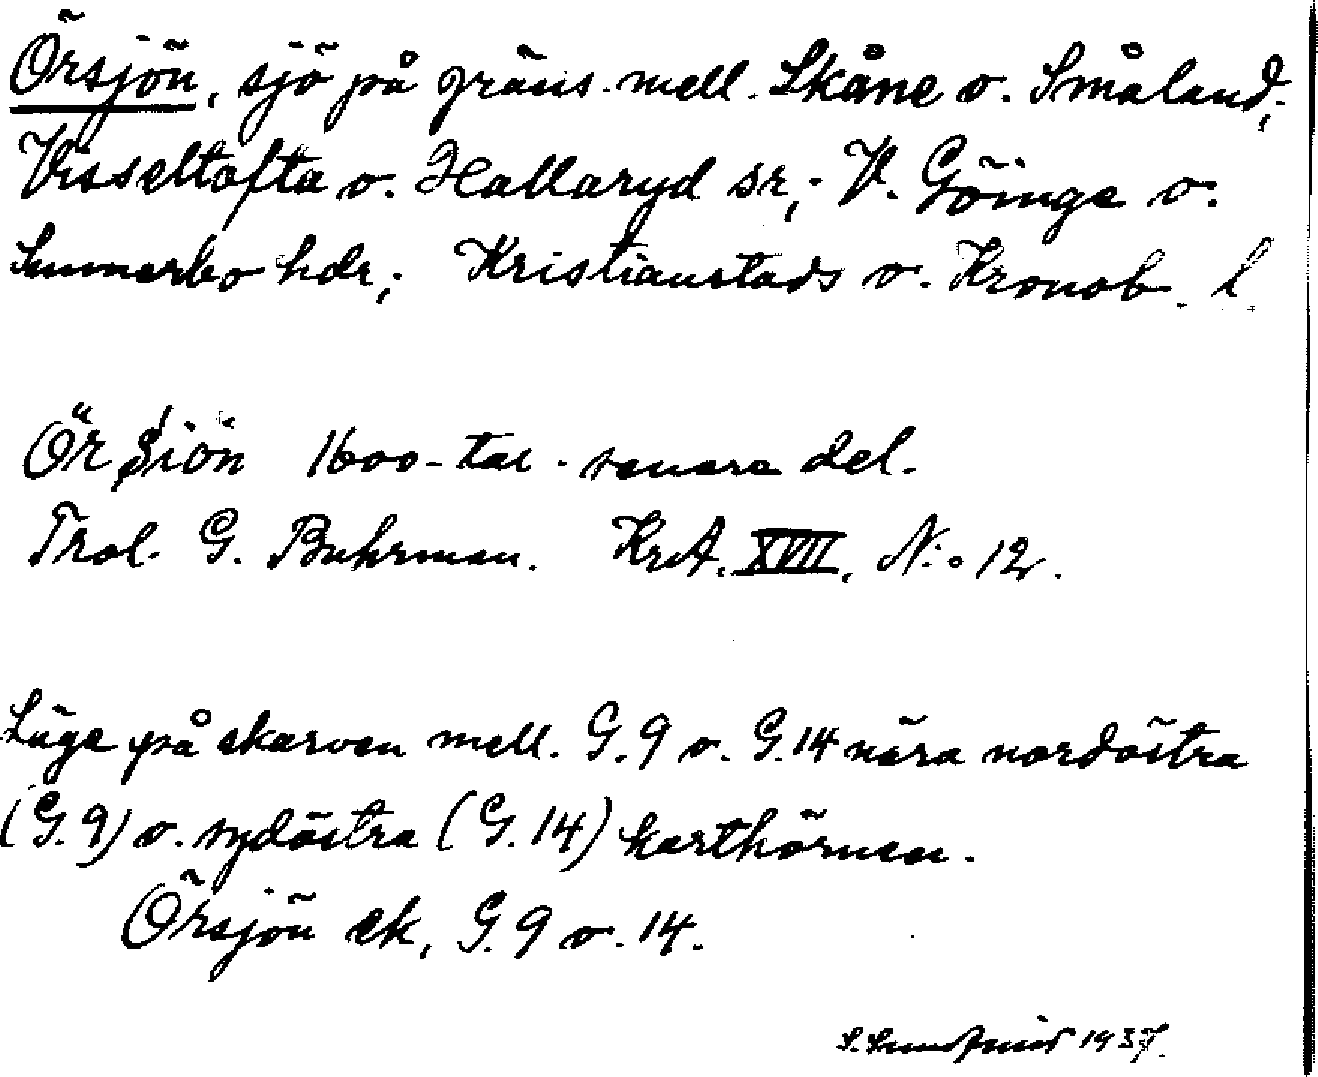 Örsjön, sjö på gräns. mell. Skåne o. Småland;
Visseltofta o. Hallaryd sr,; V. Göinge o.
Sunnerbo hdr,; Kristianstads o. Kronob. l.
Ör Siön 1600-tal. senare del.
Trol. G. Buhrman. KrA. XVII, N:o 12.
Läge på skarven mell. G.9 o. G.14 nära nordöstra
(G.9) o. sydöstra (G.14) karthörnen.
Örsjön ek, G.9 o. 14.
1937.